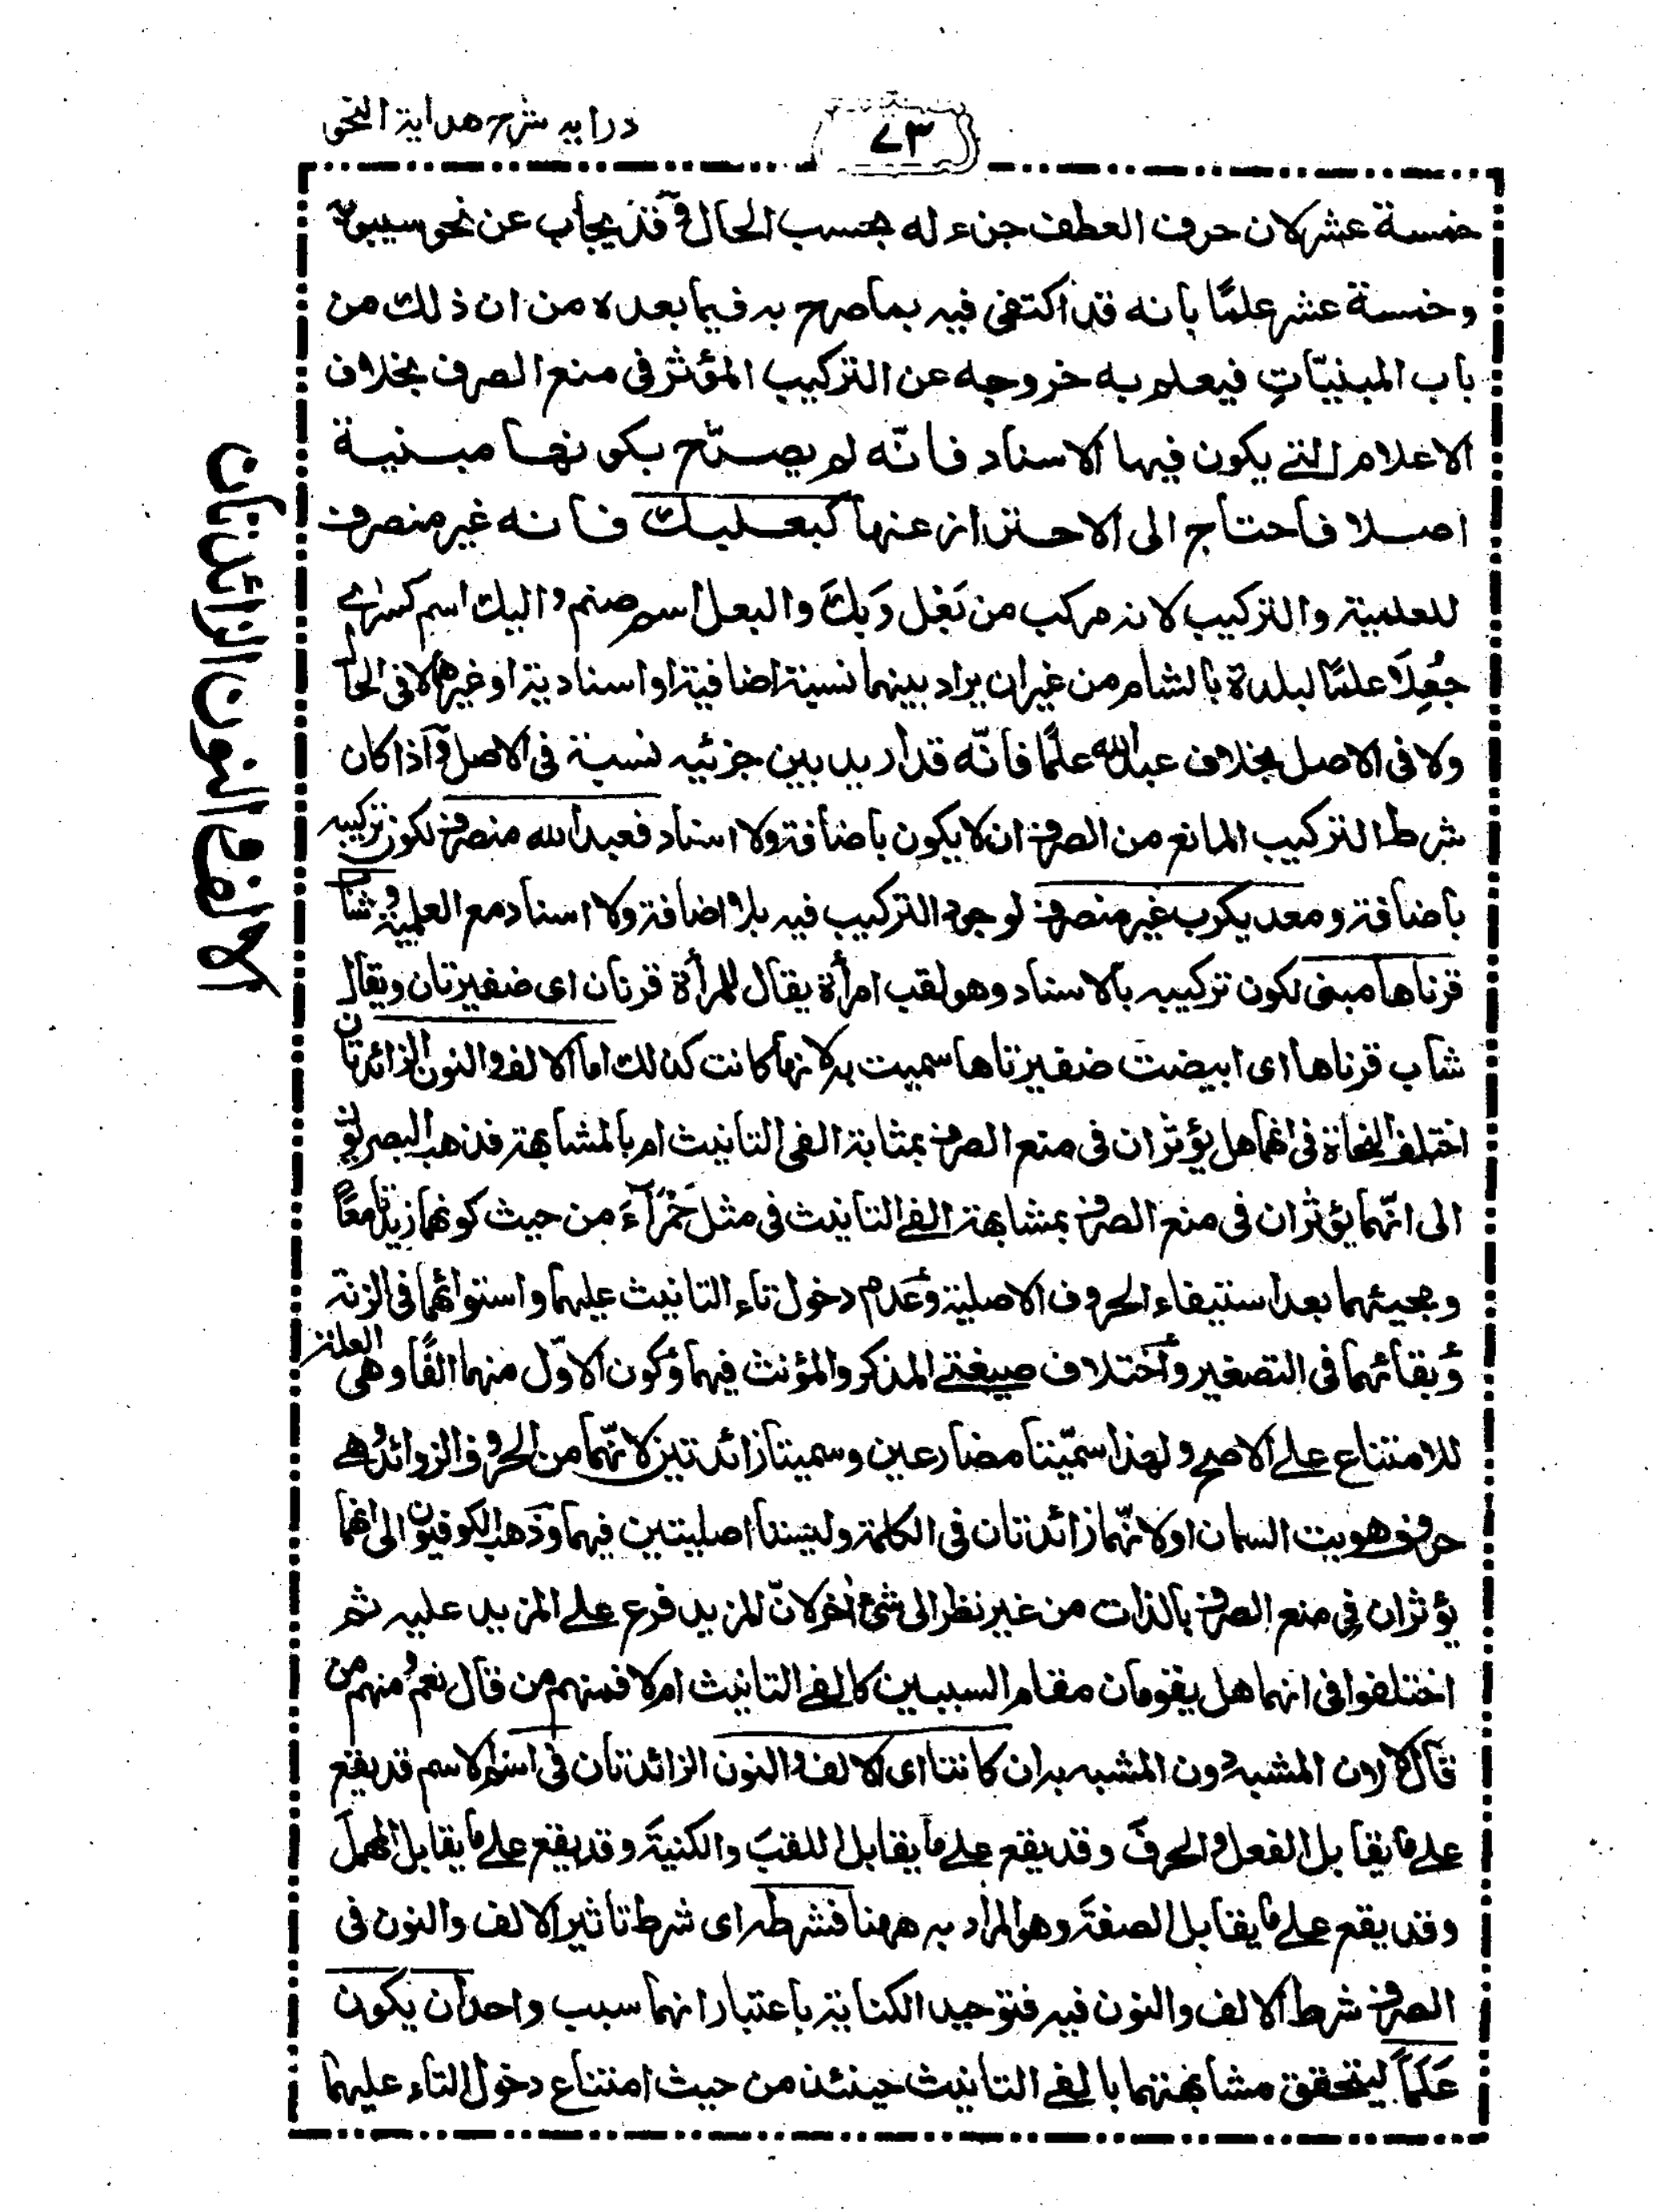 درايه شرح هداية النحو
٧٣
خمسة عشر لان حرف العطف جزء له بحسب الحال وقد يجاب عن نحو سيبويه
وخمسة عشر علمًا بانه قد اكتفى فيه بما صرح به فيما بعده من ان ذلك من
باب المبنيّاتِ فيعلم به خروجه عن التركيب المؤثر فى منع الصرف بخلاف
الاعلام التے يكون فيها الاسناد فانّه لم يصرّح بكونها مبنية
اصلا فاحتاج الى الاحتراز عنها كبعلبك فانه غير منصرف
للعلمية والتركيب لانه مركب من بَعْل وَبَكَّ والبعل اسم صنم والبك اسم
جُعِلَا علمًا لبلدة بالشام من غير ان يراد بينهما نسبة اضافية او اسنادية او غيرهما لا فى الحال
ولا فى الاصل بخلاف عبد الله علمًا فانّه قد أريد بين جزئيه نسبة فى الاصل وآذا كان
شرط التركيب المانع من الصرف ان لا يكون باضافة ولا اسناد فعبد الله منصرف لكون تركيبه
باضافة ومعديكرب غير منصرف لوجود التركيب فيه بلا اضافة ولا اسناد مع العلمية وشاب
قرناها مبنى لكون تركيبه بالاسناد وهو لقب امرأة يقال للمرأة قرنان اى ضفيرتان ويقال
شاب قرناها اى ابيضت ضفيرتاها سميت به لانها كانت كذلك اما الالف والنون الزائدتان
اختلف النحاة فى انهما هل يؤثران فى منع الصرف بمثابة الفى التانيث ام بالمشابهة فذهب البصريون
الى انّهما يؤثران فى منع الصرف بمشابهة الفے التانيث فى مثل حَمْرَآءَ من حيث كونهما زيدتا معًا
ومجيئهما بعد استيفاء الحروف الاصلية وعدم دخول تاء التانيث عليهما واستوائهما فى الزنة
وبقائهما فى التصغير واختلاف صيغتے المذكر والمؤنث فيهما وكون الاوّل منهما الفًا وهى العلة
للامتناع علے الاصح ولهذا سمّيتا مضارعين وسميتا زائدتين لانّهما من الحروف الزوائد وهے
حروف هويت السمان او لانّهما زائدتان فى الكلمة وليستا اصليتين فيهما وذهب الكوفيون الى انهما
يؤثران فى منع الصرف بالذات من غير نظر الى شئ اٰخر لانّ المزيد فرع علے المزيد عليه ثم
اختلفوا فى انهما هل يقومان مقام السببين كالفے التانيث ام لا فمنهم من قال نعم ومنهم من
قال لا لان المشبه دون المشبه به ان كانتا اى الالف والنون الزائدتان فى اسم الاسم قد يقع
علے ما يقابل الفعل والحرف وقد يقع علے ما يقابل اللقبَ والكنيةَ وقد يقع علے ما يقابل المهملَ
وقد يقع علے ما يقابل الصفةَ وهو المراد به ههنا فشرطه اى شرط تاثير الالف والنون فى
الصرف شرط الالف والنون فيه فتوحيد الكناية باعتبار انهما سبب واحد ان يكون
عَلَمًا ليتحقق مشابهتهما بالفے التانيث حينئذ من حيث امتناع دخول التاء عليهما
الالف والنون الزائدتان